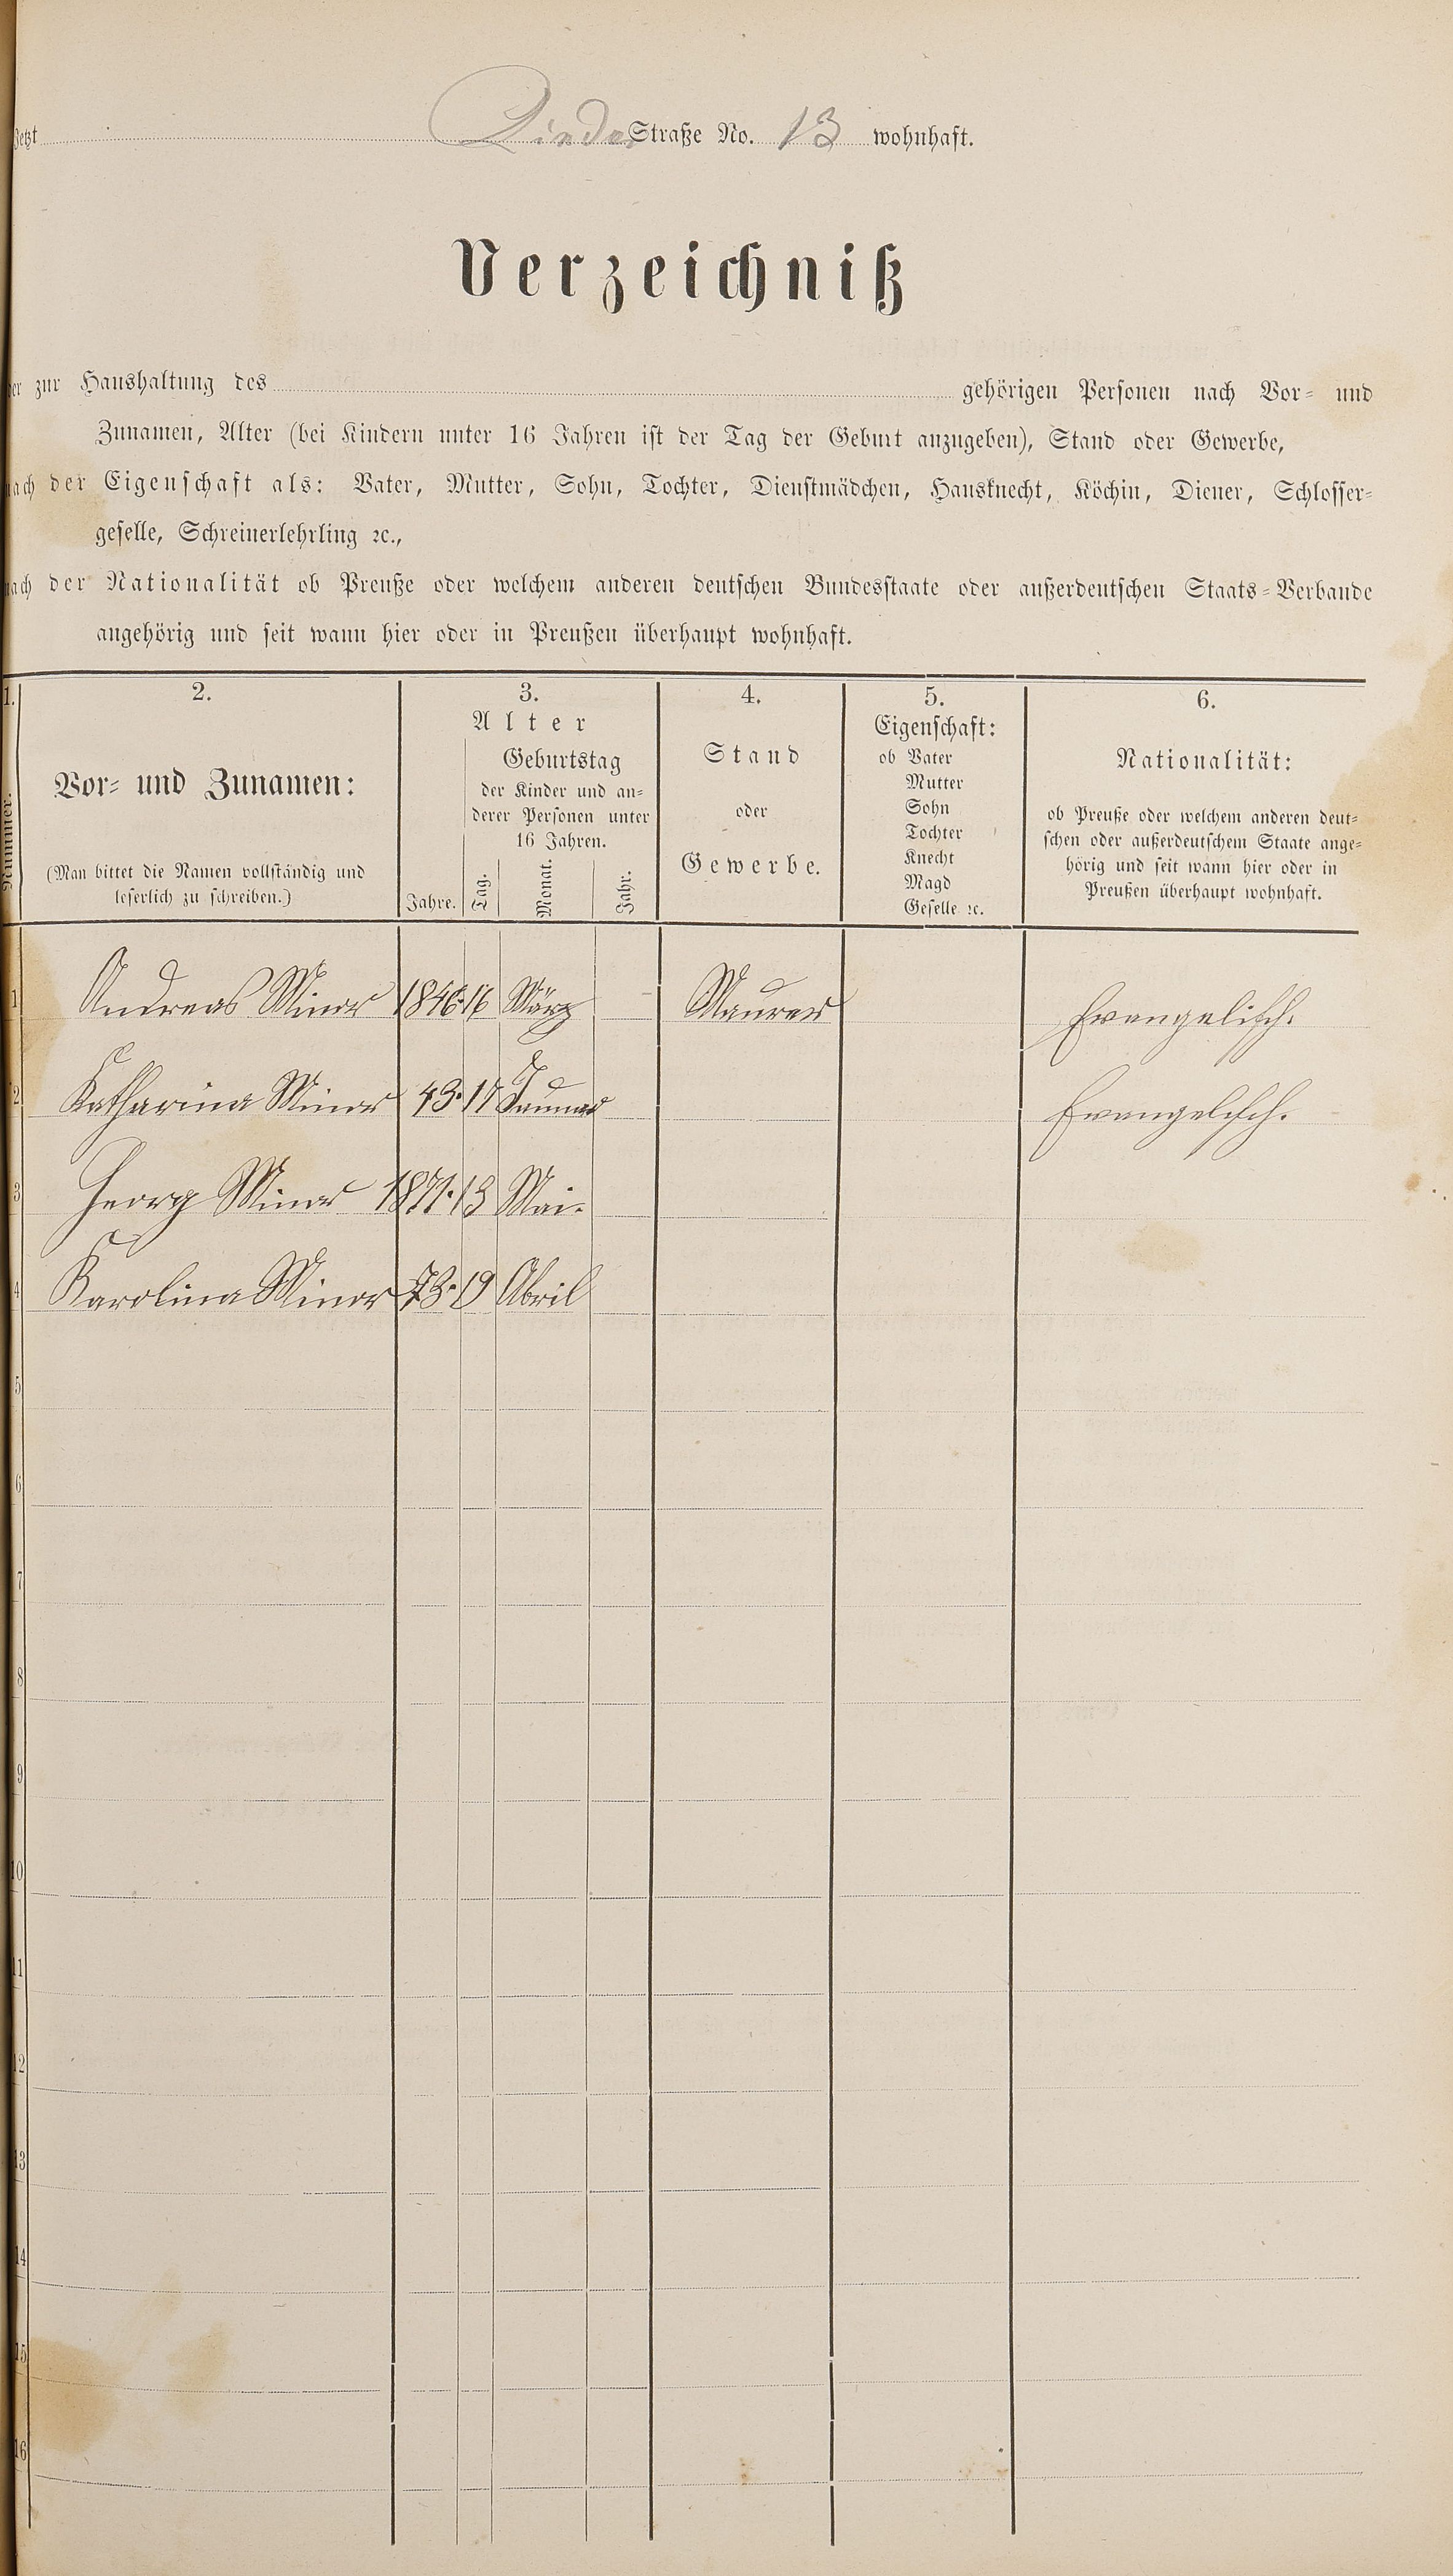 Jetzt Linden Straße No. 13 wohnhaft.
Verzeichniß
der zur Haushaltung des gehörigen Personen nach Vor- und
Zunamen, Alter (bei Kindern unter 16 Jahren ist der Tag der Geburt anzugeben), Stand oder Gewerbe,
nach der Eigenschaft als: Vater, Mutter, Sohn, Tochter, Dienstmädchen, Hausknecht, Köchin, Diener, Schlosser-
geselle, Schreinerlehrling ꝛc.,
nach der Nationalität ob Preuße oder welchem anderen deutschen Bundesstaate oder außerdeutschen Staats-Verbande
angehörig und seit wann hier oder in Preußen überhaupt wohnhaft.
1. 2. 3. 4. 5. 6.
Nummer.
Vor- und Zunamen:
(Man bittet die Namen vollständig und
leserlich zu schreiben.)
Alter
Geburtstag
der Kinder und an-
derer Personen unter
16 Jahren.
Jahre. Tag. Monat. Jahr.
Stand
oder
Gewerbe.
Eigenschaft:
ob Vater
Mutter
Sohn
Tochter
Knecht
Magd
Geselle ꝛc.
Nationalität:
ob Preuße oder welchem anderen deut-
schen oder außerdeutschem Staate ange-
hörig und seit wann hier oder in
Preußen überhaupt wohnhaft.
1 Andreas Minor 1846 16 März Maurer Evangelisch.
2 Katharina Minor 43. 17 Januar Evangelisch.
3 Georg Minor 1871. 13 Mai.
4 Karolina Minor 73. 19 Abril
5
6
7
8
9
10
11
12
13
14
15
16